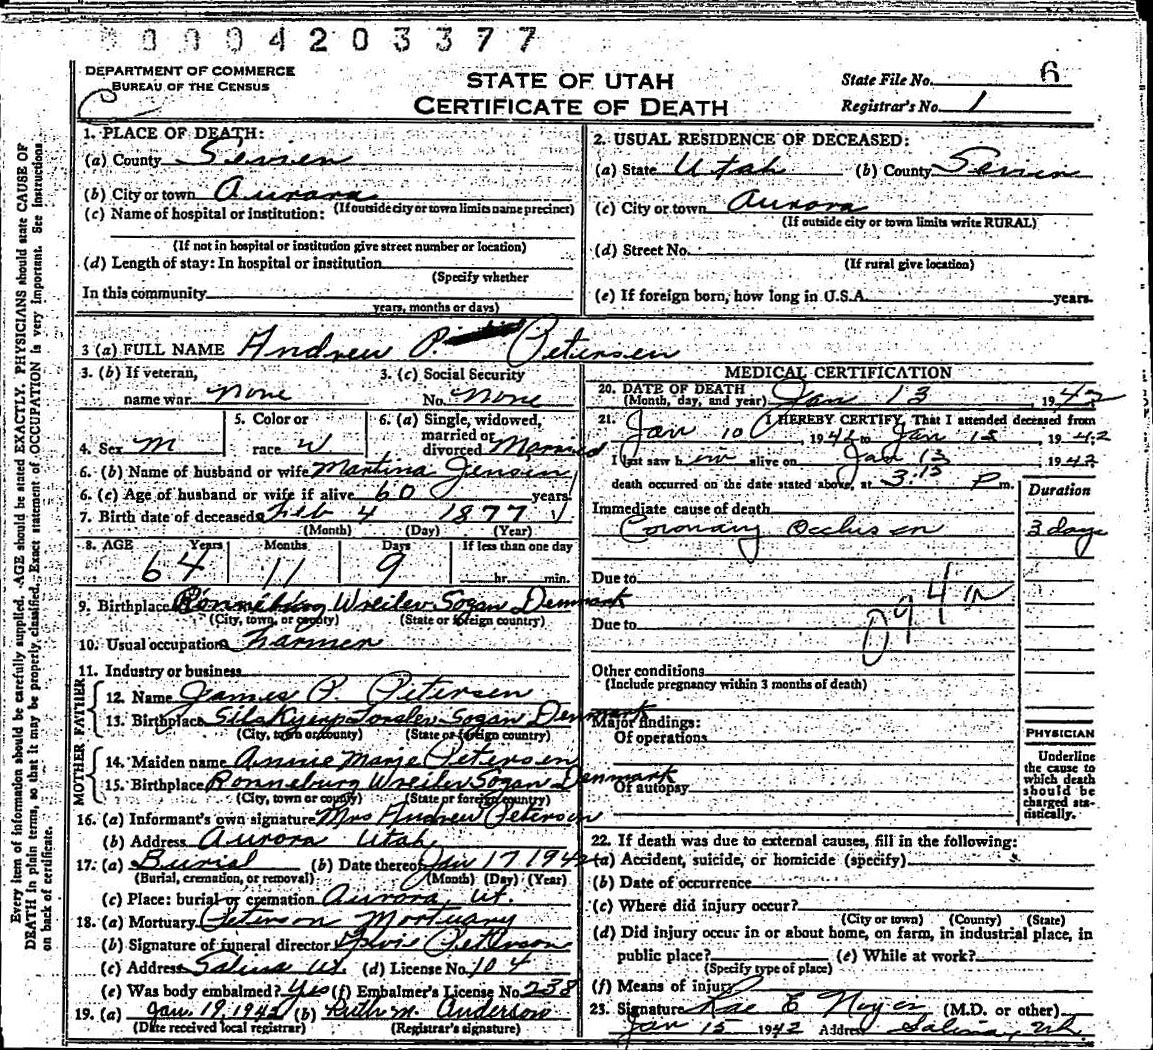 00004203377
DEPARTMENT OF COMMERCE
BUREAU OF THE CENSUS
STATE OF UTAH
CERTIFICATE OF DEATH
State File No. 6
Registrar's No. 1
Every item of information should be carefully supplied. AGE should be stated EXACTLY. PHYSICIANS should state CAUSE OF
DEATH in plain terms, so that it may be properly classified. Exact statement of OCCUPATION is very important. See instructions
on back of certificate.
1. PLACE OF DEATH:
(a) County Sevier
(b) City or town Aurora
(If outside city or town limits name precinct)
(c) Name of hospital or institution:
(If not in hospital or institution give street number or location)
(d) Length of stay: In hospital or institution
(Specify whether
In this community
years, months or days)
2. USUAL RESIDENCE OF DECEASED:
(a) State Utah (b) County Sevier
(c) City or town Aurora
(If outside city or town limits write RURAL)
(d) Street No.
(If rural give location)
(e) If foreign born, how long in U.S.A. years.
3 (a) FULL NAME Andrew P. Petersen
3. (b) If veteran,
name war none
3. (c) Social Security
No. none
4. Sex M
5. Color or
race W
6. (a) Single, widowed,
married or
divorced Married
6. (b) Name of husband or wife Martina Jensen
6. (c) Age of husband or wife if alive 60 years
7. Birth date of deceased Feb 4 1877
(Month) (Day) (Year)
8. AGE Years Months Days If less than one day
64 11 9 hr. min.
9. Birthplace Ronneburg Wreilev Sogan Denmark
(City, town, or county) (State or foreign country)
10. Usual occupation Farmer
11. Industry or business
FATHER
12. Name James P. Petersen
13. Birthplace Torslev Sogan Denmark
(City, town or county) (State or foreign country)
MOTHER
14. Maiden name Annie Marie Petersen
15. Birthplace Ronneburg Wreilev Sogan Denmark
(City, town or county) (State or foreign country)
16. (a) Informant's own signature Mrs Andrew Petersen
(b) Address Aurora Utah
17. (a) Burial (b) Date thereof Jan 17 1942
(Burial, cremation, or removal) (Month) (Day) (Year)
(c) Place: burial or cremation Aurora, Ut.
18. (a) Mortuary Peterson Mortuary
(b) Signature of funeral director Peterson
(c) Address Salina Ut. (d) License No. 104
(e) Was body embalmed? Yes (f) Embalmer's License No. 238
19. (a) Jan. 19, 1942 (b) Ruth M. Anderson
(Date received local registrar) (Registrar's signature)
MEDICAL CERTIFICATION
20. DATE OF DEATH
(Month, day, and year) Jan 13, 1942
21. I HEREBY CERTIFY, That I attended deceased from
Jan 10, 1942 to Jan 13, 1942
I last saw him alive on Jan 13 1942
death occurred on the date stated above, at 3:15 P m.
Duration
Immediate cause of death
Coronary Occlusion 3 days
Due to
094
Due to
Other conditions
(Include pregnancy within 3 months of death)
Major findings:
Of operations
Of autopsy
PHYSICIAN
Underline
the cause to
which death
should be
charged sta-
tistically.
22. If death was due to external causes, fill in the following:
(a) Accident, suicide, or homicide (specify)
(b) Date of occurrence
(c) Where did injury occur?
(City or town) (County) (State)
(d) Did injury occur in or about home, on farm, in industrial place, in
public place? (e) While at work?
(Specify type of place)
(f) Means of injury
23. Signature Rae E Noyes (M.D. or other)
Jan 15 1942 Address Salina, Ut.